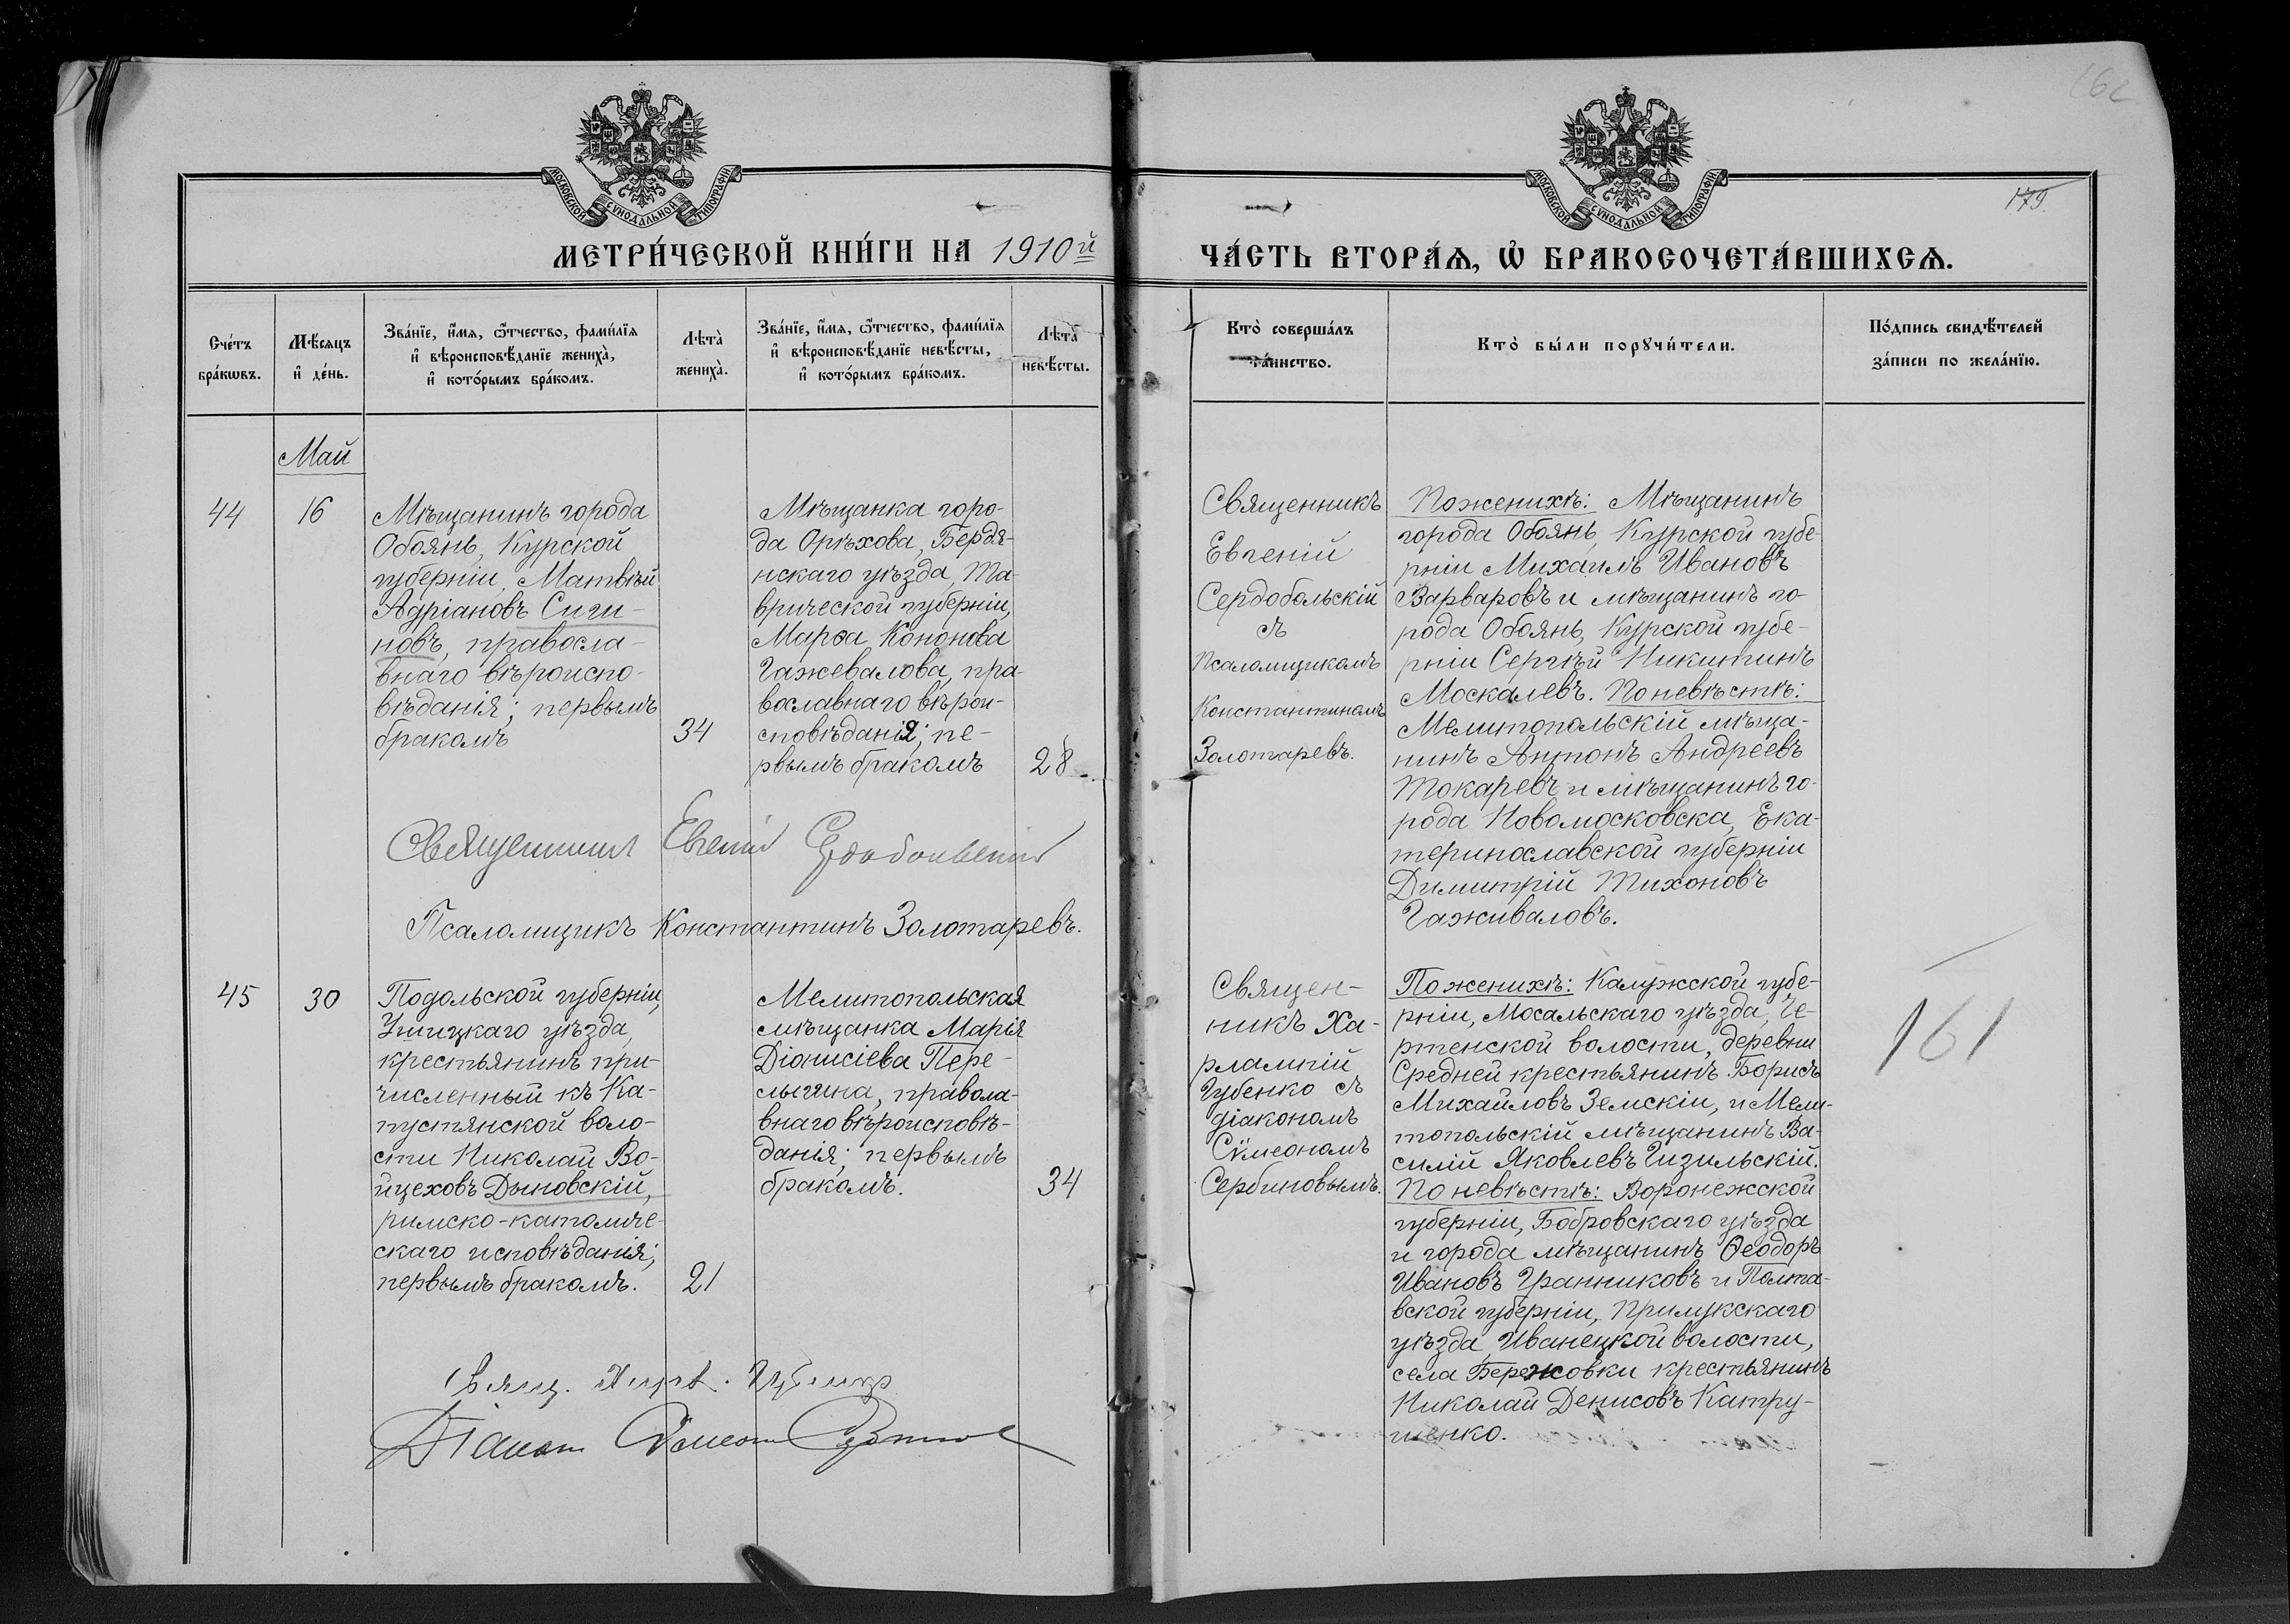 162
175.
МОСКОВСКОЙ СѴНОДАЛЬНОЙ ТИПОГРАФІИ
МОСКОВСКОЙ СѴНОДАЛЬНОЙ ТИПОГРАФІИ
МЕТРИ́ЧЕСКОЙ КНИ́ГИ НА 1910й
ЧА́СТЬ ВТОРА́Ѧ, Ѽ БРАКОСОЧЕТА́ВШИХСѦ.
Сче́тъ
бра́кѡвъ.
Мѣ́сяцъ
и҆ де́нь.
Зва́нїе, и҆́мѧ, ѻ҆́тчество, фами́лїѧ
и҆ вѣроисповѣ́данїе жениха̀,
и҆ кото́рымъ бра́комъ.
Лѣта̀
жениха̀.
Зва́нїе, и҆́мѧ, ѻ҆́тчество, фами́лїѧ
и҆ вѣроисповѣ́данїе невѣ́сты,
и҆ кото́рымъ бра́комъ.
Лѣта̀
невѣ́сты.
Кто̀ соверша́лъ
та́инство.
Кто̀ бы́ли порꙋчи́тели.
По́дпись свидѣ́телей
за́писи по жела́нїю.
Май
44
16
Мѣщанинъ города
Обоянь, Курской
губерніи, Матвѣй
Адріановъ Сиги-
новъ, правосла-
внаго вѣроиспо-
вѣданія; первымъ
бракомъ
34
Мѣщанка горо-
да Орѣхова, Бердя-
нскаго уѣзда, Та-
врической губерніи,
Марѳа Кононова
Гажевалова, пра-
вославнаго вѣрои-
сповѣданія; пе-
рвымъ бракомъ
28
Священникъ
Евгеній
Сердобольскій
съ
псаломщикомъ
Константиномъ
Золотаревъ.
По женихѣ: Мѣщанинъ
города Обоянь, Курской губе-
рніи Михаилъ Ивановъ
Варваровъ и мѣщанинъ го-
рода Обоянь, Курской губе-
рніи Сергѣй Никитинъ
Москалевъ. По невѣстѣ:
Мелитопольскій мѣща-
нинъ Антонъ Андреевъ
Токаревъ и мѣщанинъ го-
рода Новомосковска, Ека-
теринославской губерніи
Димитрій Тихоновъ
Гаживаловъ.
Священникъ Евгеній Сердобольскій
Псаломщикъ Константинъ Золотаревъ.
45
30
Подольской губерніи,
Ушицкаго уѣзда,
крестьянинъ при-
численный къ Ка-
пустянской воло-
сти Николай Во-
йцеховъ Дыновскій,
римско-католиче-
скаго исповѣданія;
первымъ бракомъ.
21
Мелитопольская
мѣщанка Марія
Діонисіева Пере-
лыгина, правола-
внаго вѣроисповѣ-
данія; первымъ
бракомъ.
34
Священ-
никъ Ха-
рлампій
Губенко съ
діакономъ
Сѵмеономъ
Сербиновымъ.
По женихѣ: Калужской губе-
рніи, Мосальскаго уѣзда, Че-
ртенской волости, деревни
Средней крестьянинъ Борисъ
Михайловъ Земскіи, и Мели-
топольскій мѣщанинъ Ва-
силій Яковлевъ Гизильскій.
По невѣстѣ: Воронежской
губерніи, Бобровскаго уѣзда
и города мѣщанинъ Ѳеодоръ
Ивановъ Гранниковъ и Полта-
вской губерніи, Прилукскаго
уѣзда, Иванецкой волости,
села Бережовки крестьянинъ
Николай Денисовъ Катру-
шенко.
161
Свящ. Харл. Губенко
Діаконъ Сѵмеонъ Сербиновъ